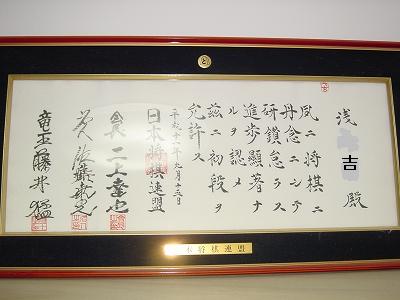 と
浅 吉 殿
夙ニ将棋ニ
丹念ニシテ
研鑽怠ラス
進歩顕著ナ
ルヲ認メ
茲ニ初段ヲ
允許ス
日本将棋連盟
会長 二上達也
名人 佐藤康光
竜王 藤井猛
日本将棋連盟